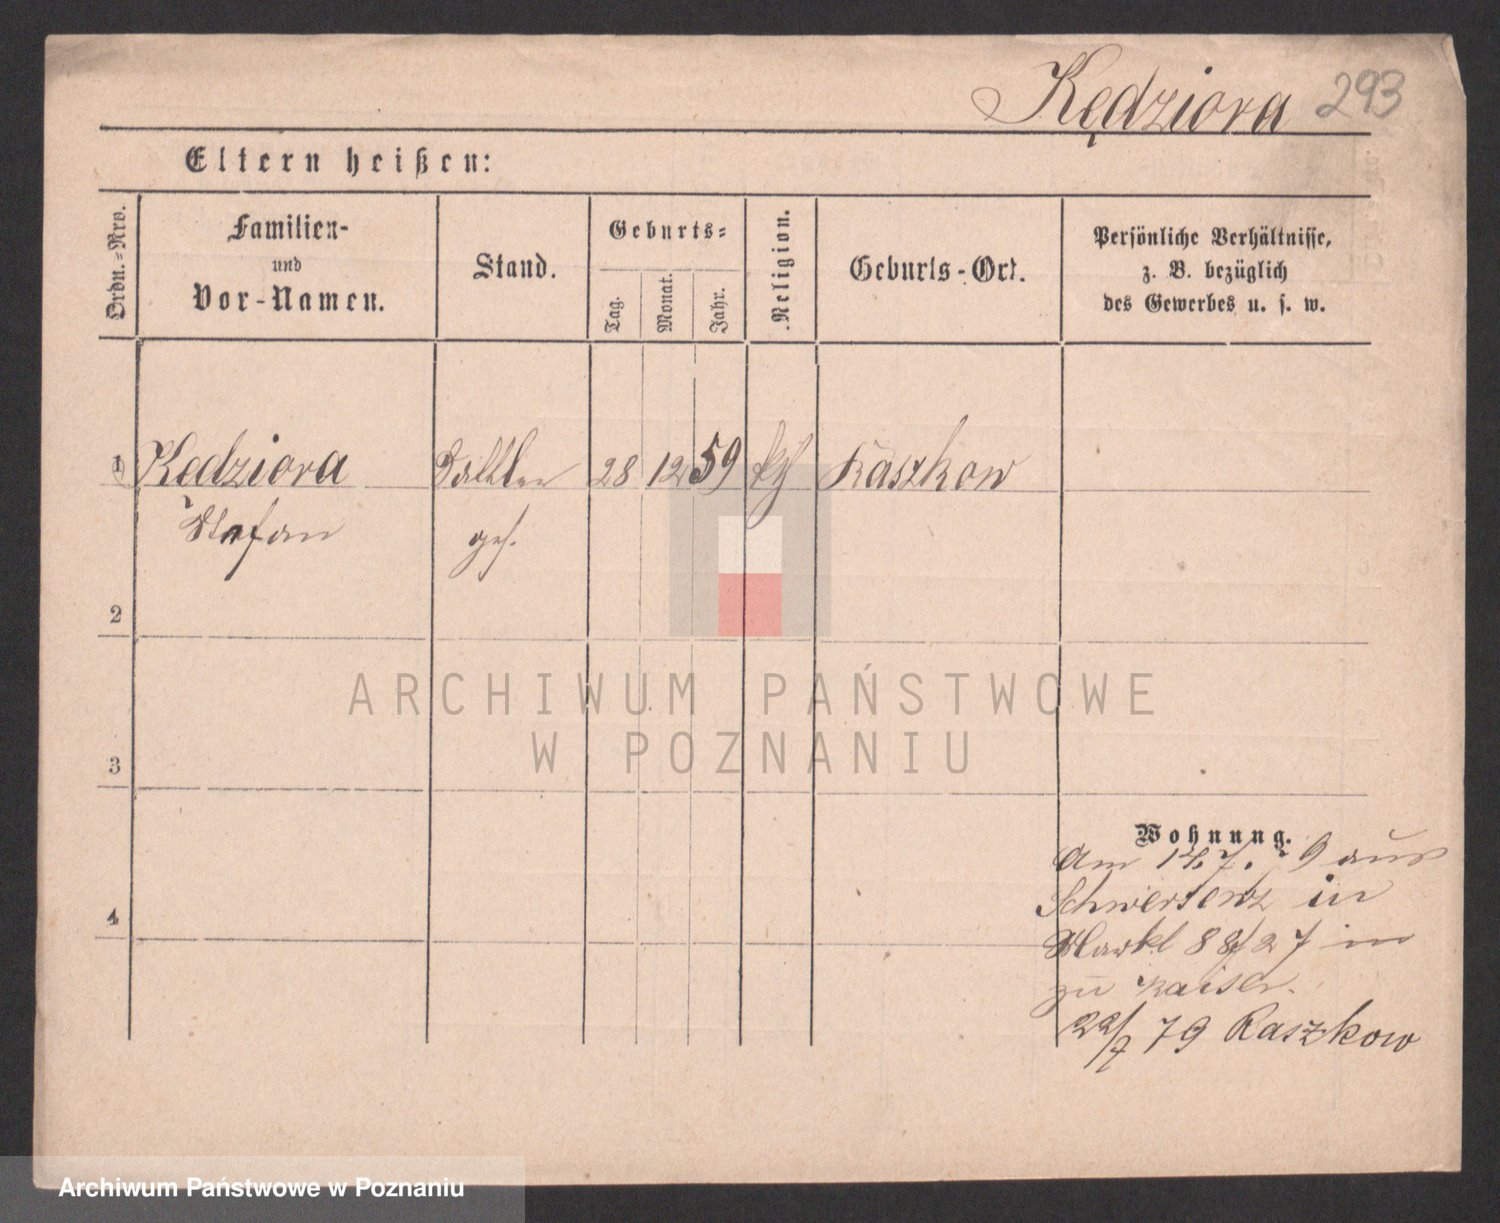 Kędziora 293
Eltern heißen:
Ordn.-Nro.
Familien-
und
Vor-Namen.
Stand.
Geburts-
Tag.
Monat.
Jahr.
Religion.
Geburts-Ort.
Persönliche Verhältnisse,
z. B. bezüglich
des Gewerbes u. s. w.
1 Kędziora 28 12 59 Raszkow
Stefan
2
3
4
ARCHIWUM PAŃSTWOWE
W POZNANIU
Wohnung.
Am 14.7. 79 aus
Schwersenz in
Markt 88
zu Kaiser.
22/7 79 Raszkow
Archiwum Państwowe w Poznaniu